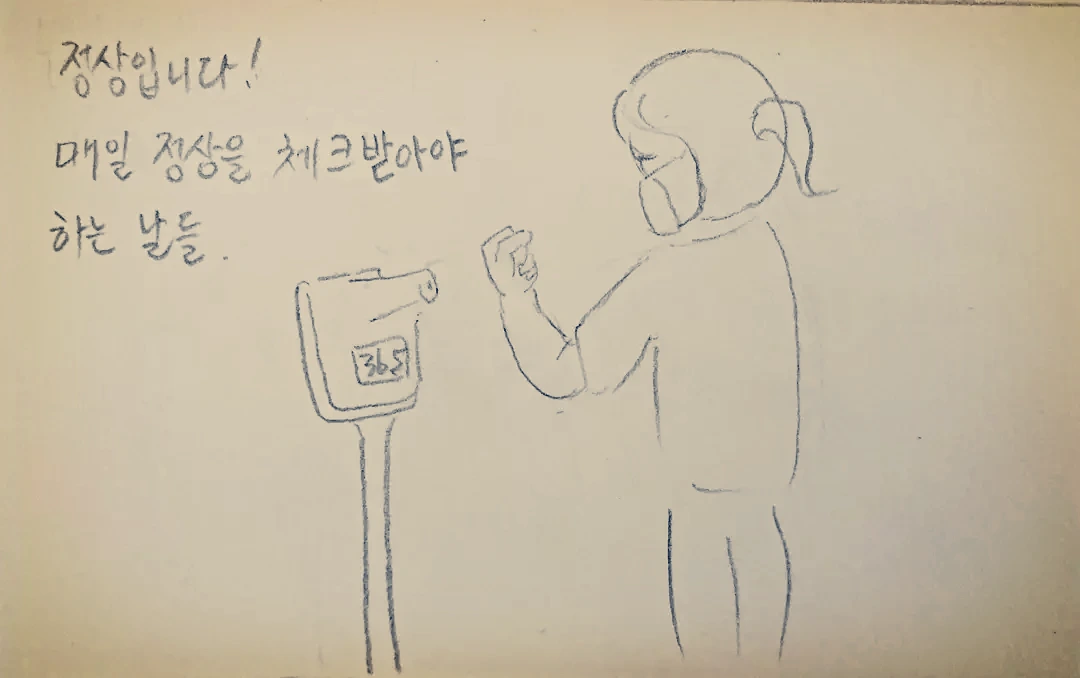 정상입니다!
매일 정상을 체크받아야
하는 날들.
365